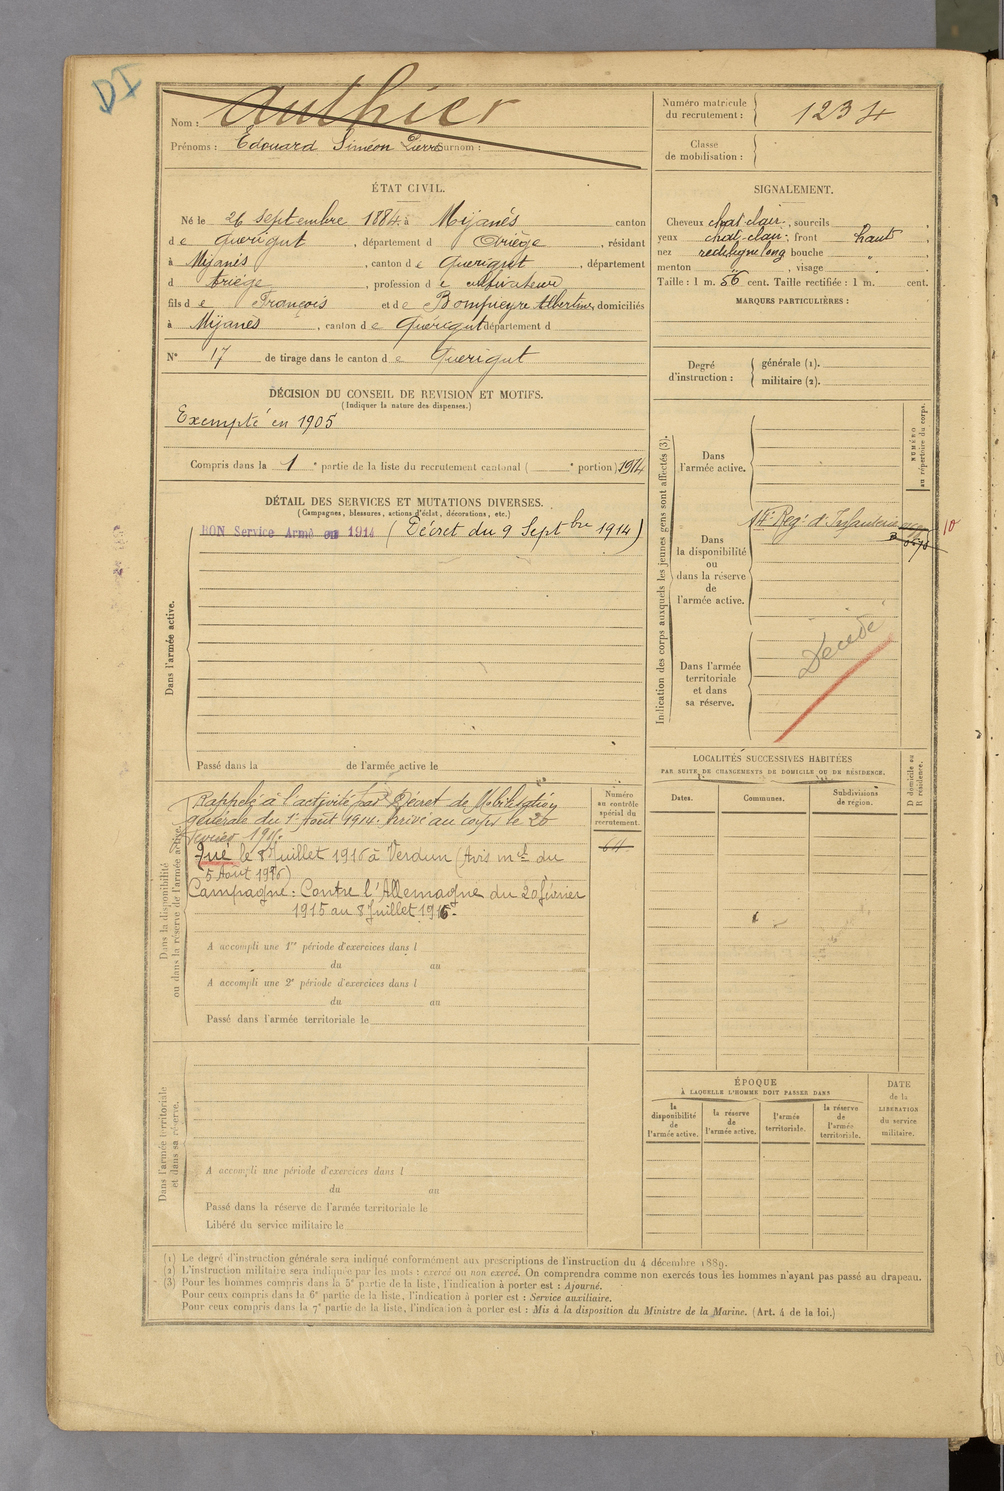 DI
Nom : Authier
Prénoms : Edouard Siméon Pierre Surnom :
Numéro matricule du recrutement : 1234
Classe de mobilisation :
ÉTAT CIVIL.
Né le 26 Septembre 1884 à Mijanès canton
de Quérigut, département d Ariège, résidant
à Mijanès, canton de Quérigut, département
d Ariège, profession de cultivateur
fils de François et de Bompieyre Albertine, domiciliés
à Mijanès, canton de Quérigut département d
N° 17 de tirage dans le canton de Quérigut
SIGNALEMENT.
Cheveux chat-clair, sourcils
yeux chat-clair, front haut
nez rectiligne long bouche "
menton " , visage
Taille : 1 m. 56 cent. Taille rectifiée : 1 m. cent.
MARQUES PARTICULIÈRES :
Degré d'instruction :
générale (1).
militaire (2).
DÉCISION DU CONSEIL DE REVISION ET MOTIFS.
(Indiquer la nature des dispenses.)
Exempté en 1905
Compris dans la 1e partie de la liste du recrutement cantonal ( e portion) 1914
DÉTAIL DES SERVICES ET MUTATIONS DIVERSES.
(Campagnes, blessures, actions d'éclat, décorations, etc.)
BON Service Armé en 1914 (Décret du 9 Septbre 1914)
Dans l'armée active.
Passé dans la de l'armée active le
Indication des corps auxquels les jeunes gens sont affectés (3).
NUMÉRO
au répertoire du corps.
Dans
l'armée active.
Dans
la disponibilité
ou
dans la réserve
de
l'armée active.
14e Reg. d'Infanterie
10
Dans l'armée
territoriale
et dans
sa réserve.
Décédé
Dans la disponibilité
ou dans la réserve de l'armée active.
Rappelé à l'activité par Décret de Mobilisation
générale du 1er Août 1914. Arrivé au corps le 20
février 1915.
Tué le 8 Juillet 1916 à Verdun (Avis mel du
5 Août 1916)
Campagne : Contre l'Allemagne du 20 février
1915 au 8 Juillet 1916.
Numéro
au contrôle
spécial du
recrutement.
64
A accompli une 1re période d'exercices dans l
du au
A accompli une 2e période d'exercices dans l
du au
Passé dans l'armée territoriale le
LOCALITÉS SUCCESSIVES HABITÉES
PAR SUITE DE CHANGEMENTS DE DOMICILE OU DE RÉSIDENCE.
Dates.
Communes.
Subdivisions
de région.
D domicile ou
R résidence.
Dans l'armée territoriale
et dans sa réserve.
A accompli une période d'exercices dans l
du au
Passé dans la réserve de l'armée territoriale le
Libéré du service militaire le
ÉPOQUE
À LAQUELLE L'HOMME DOIT PASSER DANS
la
disponibilité
de
l'armée active.
la réserve
de
l'armée active.
l'armée
territoriale.
la réserve
de
l'armée
territoriale.
DATE
de la
LIBÉRATION
du service
militaire.
(1) Le degré d'instruction générale sera indiqué conformément aux prescriptions de l'instruction du 4 décembre 1889.
(2) L'instruction militaire sera indiquée par les mots : exercé ou non exercé. On comprendra comme non exercés tous les hommes n'ayant pas passé au drapeau.
(3) Pour les hommes compris dans la 5e partie de la liste, l'indication à porter est : Ajourné.
Pour ceux compris dans la 6e partie de la liste, l'indication à porter est : Service auxiliaire.
Pour ceux compris dans la 7e partie de la liste, l'indication à porter est : Mis à la disposition du Ministre de la Marine. (Art. 4 de la loi.)